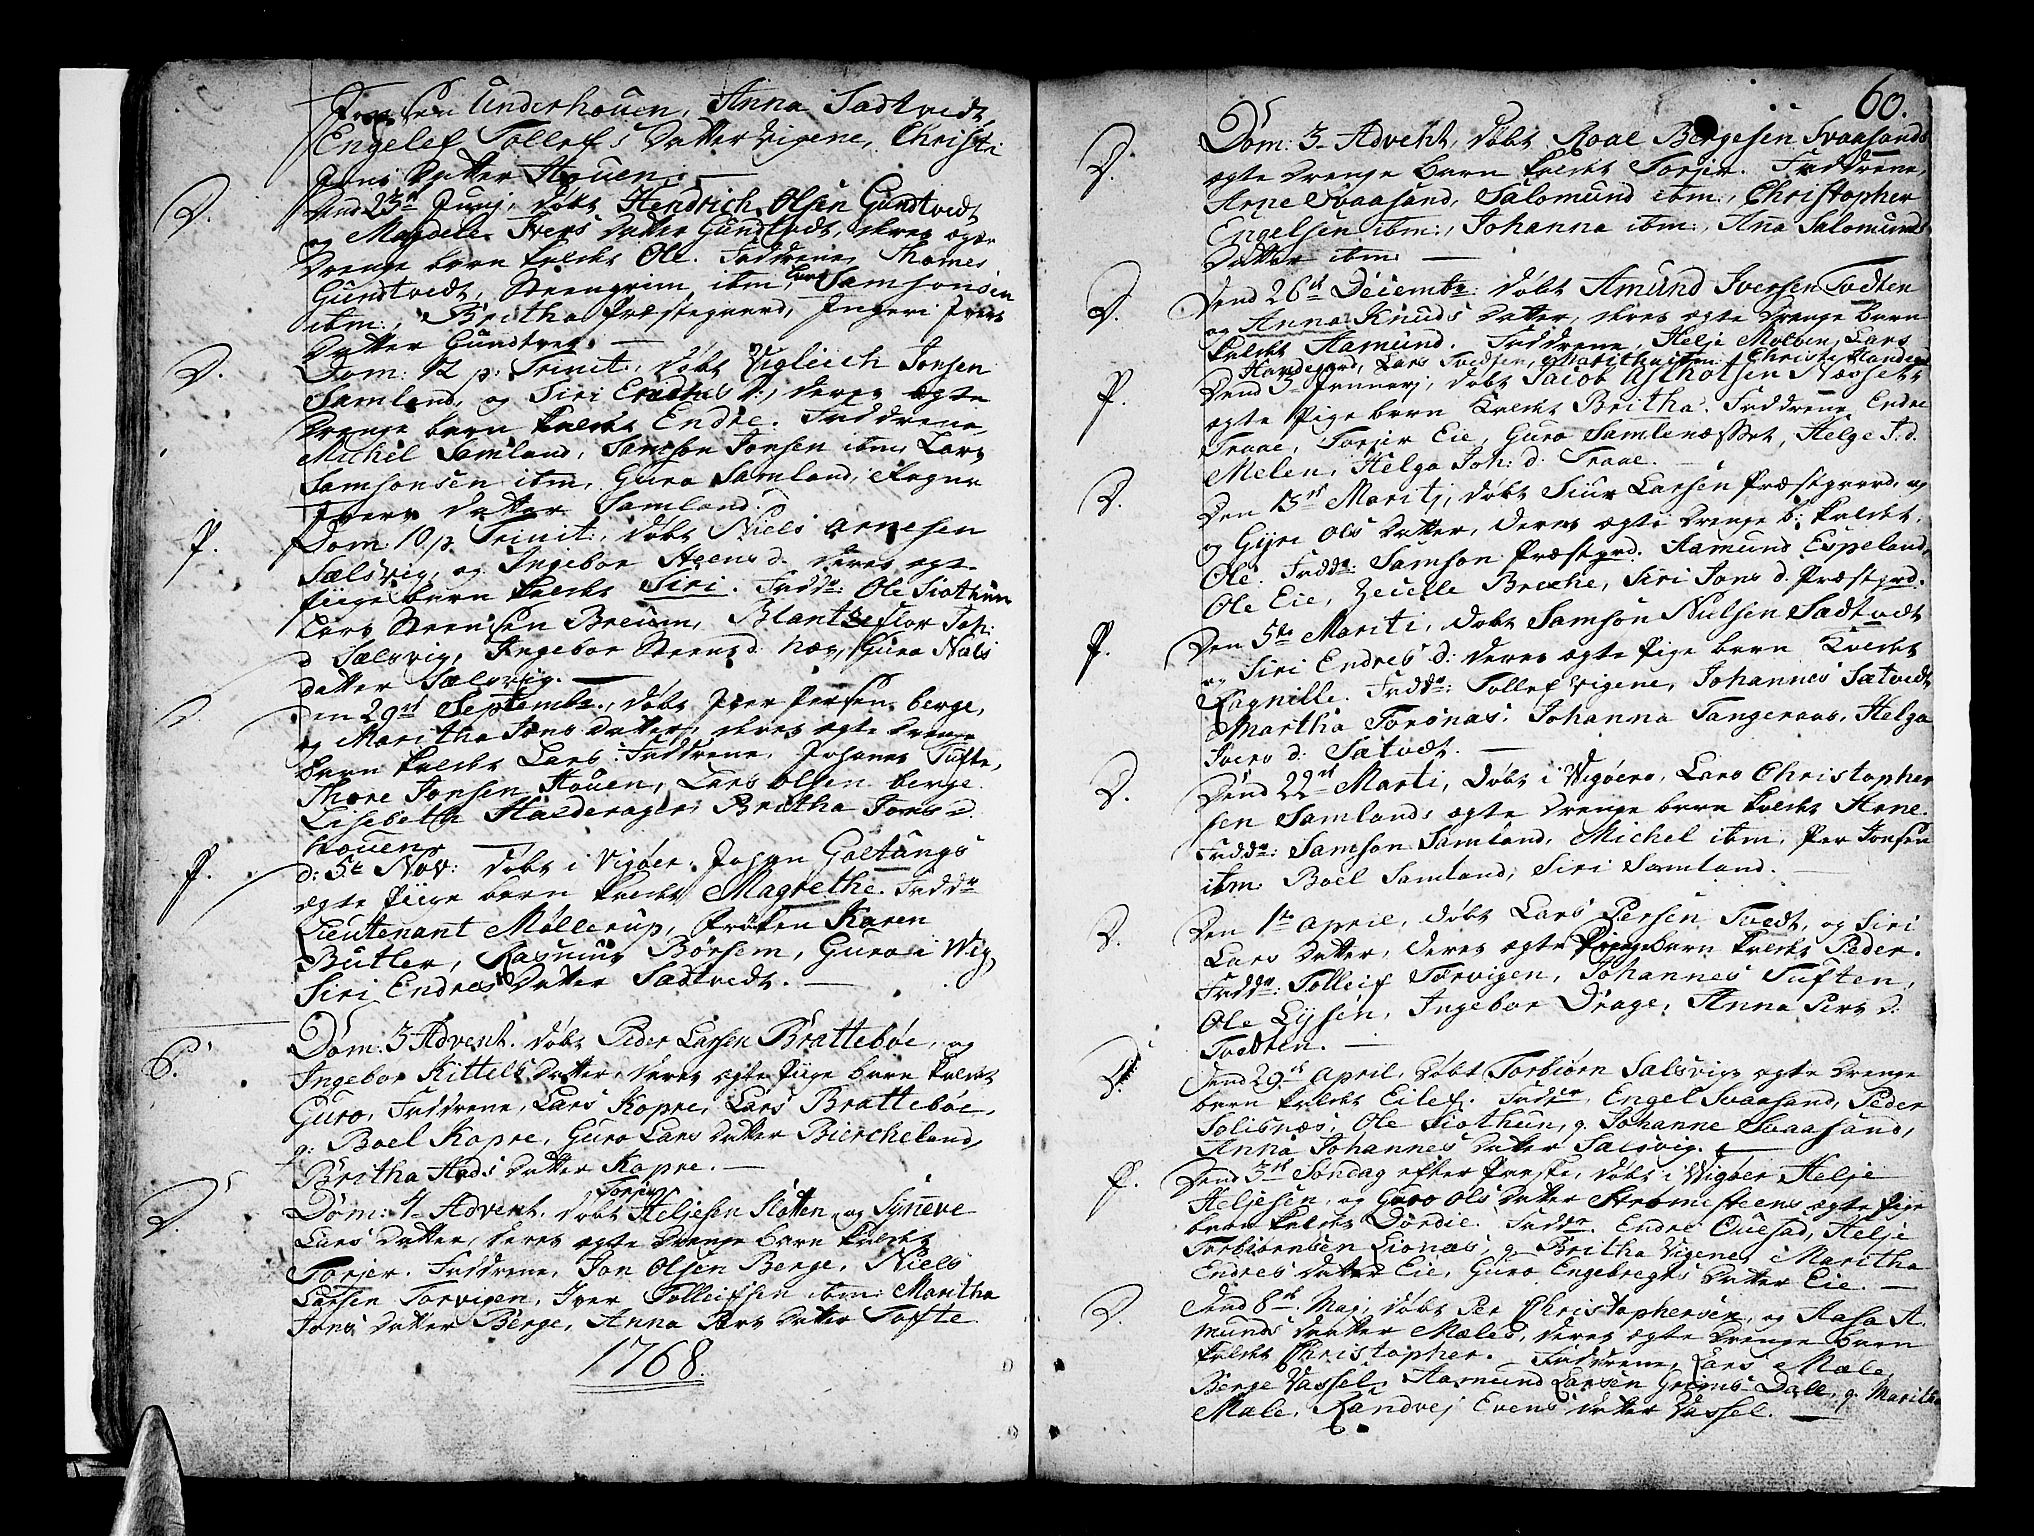 Underhouen, Anna Sadtvedt,
Engelef Tollefs Datter Vigene, Christi
Jons Datter Houen. —
D. Dend 23de Junij, døbt Hendrich Olsen Gundtvedt
og Magdele Ivers Datter Gundtvedt, deres ægte
Drenge barn kaldet Ole. Fadderne, Thomes
Gundtvedt, Steengrim ibm, Lars Samsonsen
ibm:, Britha Præstegaard, Ingeri Ivers
Datter Gundtvet. —
D. Dom: 12 p: Trinit:, døbt Vigleich Jonsen
Samland, og Siri Endres d:, deres ægte
Drenge barn kaldet Endre. Fadderne
Michel Samland, Samson Jonsen ibm, Lars
Samsonsen ibm, Guro Samland, Ragna
Ivers Datter Samland.
P. Dom: 10 p Trinit:, døbt Niels Arnesen
Sælsvig, og Ingebor Steens d. deres ægte
Piige barn kaldet Siri. Fadd: Ole Siothun
Lars Steensen Breum, Blantzeflor Joh:
d Sælsvig, Ingebor Steens d. Næs, Guro Niels
datter Sælsvig. —
D. Den 29de Septembr., døbt Peer Persen berge,
og Maritha Jons Datter, deres ægte Drenge
barn kaldet Lars. Fadderne, Johanes Tufte,
Thore Jonsen Houen, Lars Olsen berge
Lisebeth Halderager, Britha Jons d.
Houen. —
P. d: 5te Nov: døbt i Vigøer, Johan Galtungs
ægte Piige barn kaldet Magrethe. Fadd:
Lieutenant Møllerup, Frøken Karen
Butler, Rasmus Børsem, Guro i Wig,
Siri Endres Datter Sadtvedt. —
P. Dom: 3 Advent. døbt Peder Larsen Brattebøe, og
Ingebor Kittels Datter, deres ægte Piige barn kaldet
Guro, Fadderne, Lars Kopre, Lars Brattebøe,
g: Boel Kopre, Guro Lars Datter Biercheland,
Britha Mads Datter Kopre. —
D. Dom: 4 Advent. døbt Torjer Heljesen Slotten og Synneve
Lars Datter, deres ægte Drenge barn kaldet
Torjer. Fadderne, Jon Olsen Berge, Niels
Larsen Torvigen, Iver Tolleifsen ibm: Maritha
Jons Datter Berge, Anna Pers Datter Tofte
1768.
60.
D. Dom: 3 Advent, døbt Roal Børgesen Svaasands
ægte Drenge barn kaldet Torjer. Fadderne,
Arne Svaasand, Salomund ibm:, Christopher
Engelsen ibm:, Johanna ibm:, Ana Salomunds
Datter ibm: —
D. Dend 26de Decembr: døbt Amund Iversen Tvedten
og Anna Knuds Datter, deres ægte Drenge barn
kaldet Aamund. Fadderne, Helje Molven, Lars
Handegard, Lars Tvedten, Maritha ibm: Christi Handega
P. Dend 3 Januarij, døbt Jacob Asthotsen Næssets
ægte Pige barn Kaldet Britha. Fadderne Endre
Traae, Torjer Eie, Guro Samlenæsset, Helge T. d.
Melen, Helga Joh: d: Traae. —
D. Den 13de Martij, døbt Siur Larsen Præstgaard, og
og Gyri Ols Datter, deres ægte Drenge b: kaldet,
Ole. Fadd: Samson Præstgrd. Aamund Espeland,
Ole Eie, Zeielle Breche, Siri Jons d. Præstgrd.
P. Den 5te Marti, døbt Samson Nielsen Sadtvedt
og Siri Endres d: deres ægte Pige barn Kaldet
Ragnille. Fadd: Tollef Vigene, Johannes Satvedt
Martha Toronæs, Johanna Tangeraas, Helga
Ivers d: Satvet. —
D. Dend 22de Marti, døbt i Vigøers, Lars Christopher
sen Samlands ægte Drenge barn kaldet Arne.
Fadd: Samson Samland, Michel ibm, Per Jonsen
ibm. Boel Samland, Siri Samland. —
D. Den 1te April, døbt Lars Persen Tvedt, og Siri
Lars Datter, deres ægte barn kaldet Peder.
Fadd: Tolleif Torvigen, Johannes Tuften,
Ole Lysen, Ingebor Drage, Anna Pers d:
Tvedten. —
D. Dend 29de April, døbt Torbiørn Salsvigs ægte Drenge
barn kaldet Eilef. Fadd, Engel Svaasand, Peder
Solisnæs, Ole Siothun, g. Johanne Svaasand,
Anna Johannes Datter Salsvig. —
P. Dend 3de Søndag efter Paaske, døbt i Vigøer Helje
Heljesen, og Guro Ols Datter Strømesteens ægte Pige
barn kaldet Dordie. Fadd. Endre Quesad, Helje
Torbiørnsen Lionæs, g. Britha Vigene, Maritha
Endres Datter Eie, Guro Engebregts Datter Eie. —
D. Dend 8de Maj, døbt Per Christophersen, og Aasa A.
munds Datter Mæles, deres ægte Drenge barn
kaldet Christopher. — Fadderne, Lars Mæle,
Berge Vassel, Aasmund Larsen Grims-Dale, g. Maritha
Male, Randvej Evens Datter Vassel. —